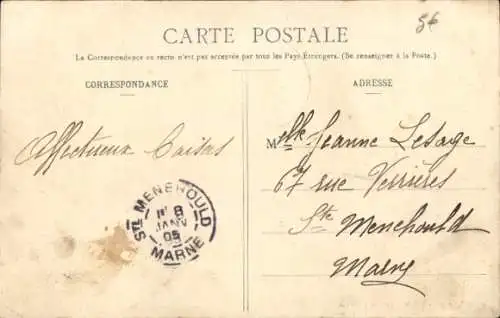 56
CARTE POSTALE
La Correspondance au recto n'est pas acceptée par tous les Pays Étrangers. (Se renseigner à la Poste.)
CORRESPONDANCE
ADRESSE
Affectueux Baisers
Melle Jeanne Lesage
67 rue Verrières
Ste Menehould
Marne
STE MENEHOULD
8
JANV
05
MARNE